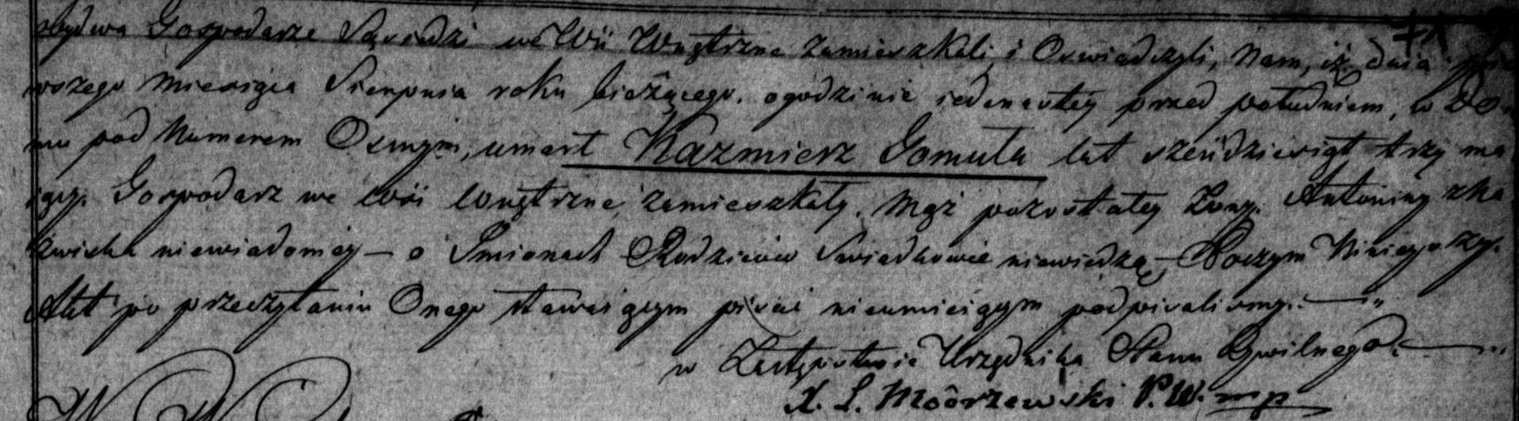 obydwa Gospodarze Sąsiedzi we Wsi Wnętrzne Zamieszkali, i Oswiadczyli, Nam, iż dnia pier
wszego Miesiąca Sierpnia roku bieżącego, ogodzinie iedenastey przed południem, w Do
mu pod Numerem Osmym, umarł Kazmierz Gomuła lat sześdziesiąt trzy ma
iący. Gospodarz we Wsi Wnętrzne Zamieszkały. Mąż pozostałey Żony. Antoniny zNa
zwiska niewiadomey — o Jmionach Rodziców Swiadkowie niewiedzą, — Poczym Ninieyszy.
Akt po przeczytaniu Onego stawaiącym pisać nieumieiącym podpisalismy. —
w Zastępstwie Urzędnika Stanu Cywilnego. —
X. L. Moórzewski P. W. mp